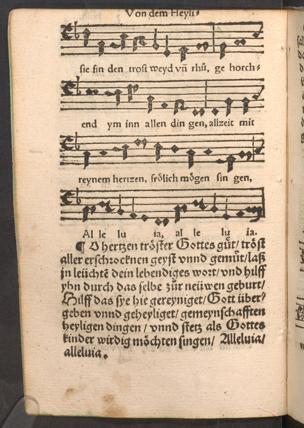 Von dem Heyli⸗
sie fin den trost weyd vñ rhů, ge horch⸗
end ym inn allen din gen, allzeit mit
reynem hertzen, frölich mögen sin gen,
Al le lu ia, al le lu ia.
¶ O hertzen tröster Gottes gůt/ tröst
aller erschrocknen geyst vnnd gemüt/ laß
jn leüchtē dein lebendiges wort/ vnd hilff
yhn durch das selbe zůr neüwen geburt/
Hilff das sye hie gereyniget/ Gott über⸗
geben vnnd geheyliget/ gemeynschafften
heyligen dingen/ vnnd stetz als Gottes
kinder wirdig möchten singen/ Alleluia/
alleluia.